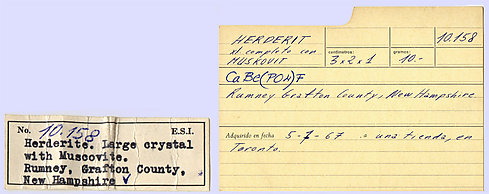 No. 10.158 E.S.I.
Herderite. Large crystal
with Muscovite.
Rumney, Grafton County,
New Hampshire ✓
HERDERIT
xl. completo con
MUSKOVIT
centimetros:
3x2x1
gramos:
10.-
10.158
CaBe(PO4)F
Rumney Grafton County, New Hampshire.
Adquirido en fecha 5-7-67 a una tienda, en
Toronto.